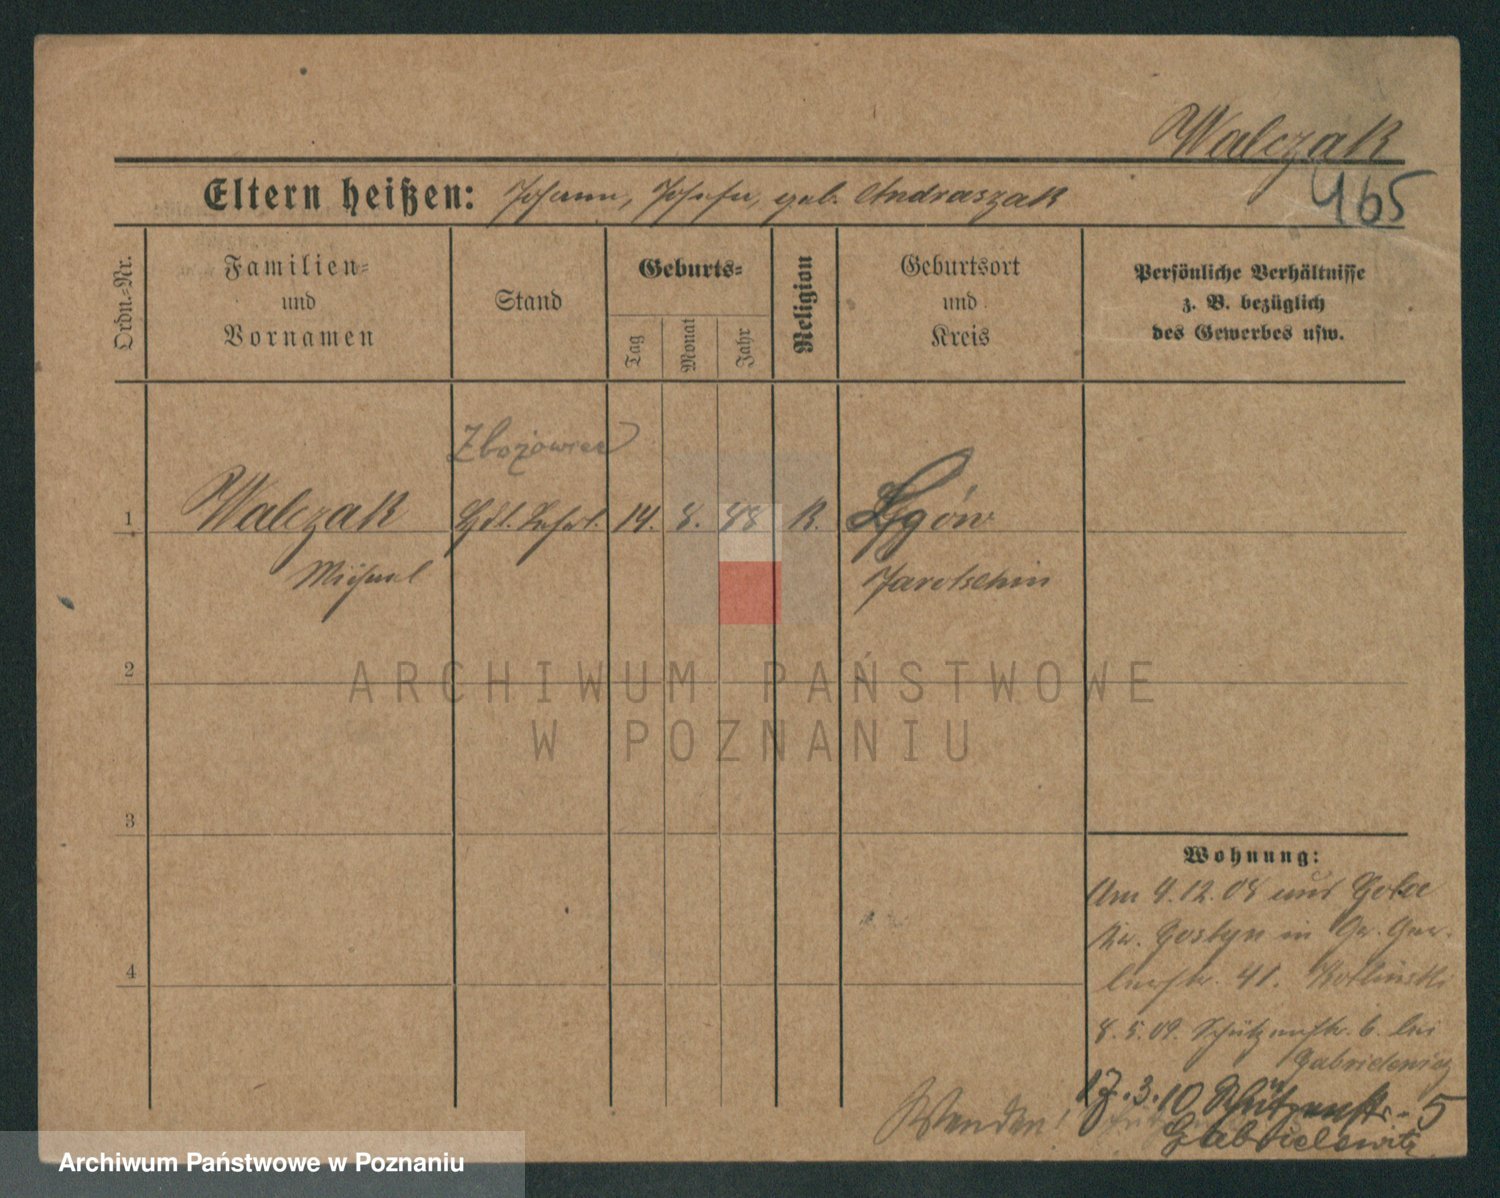 Walczak
465
Eltern heißen: Johann, Josefa, geb. Andraszak
Ordn.-Nr.
Familien-
und
Vornamen
Stand
Geburts-
Tag
Monat
Jahr
Religion
Geburtsort
und
Kreis
Persönliche Verhältnisse
z. B. bezüglich
des Gewerbes usw.
1
Walczak
Michael
14. 8. 88
K.
Lgów
Jarotschin
2
ARCHIWUM PAŃSTWOWE
W POZNANIU
3
4
Wohnung:
Am 4.12.08 aus Gola
Kr. Gostyn in Gr. Ger-
berstr. 41. Kotlinski
8.5.09. Schützenstr. 6. bei
Gabrielewicz
17.3.10 Schützenstr. 5
Gabrielewitz
Wenden!
Archiwum Państwowe w Poznaniu